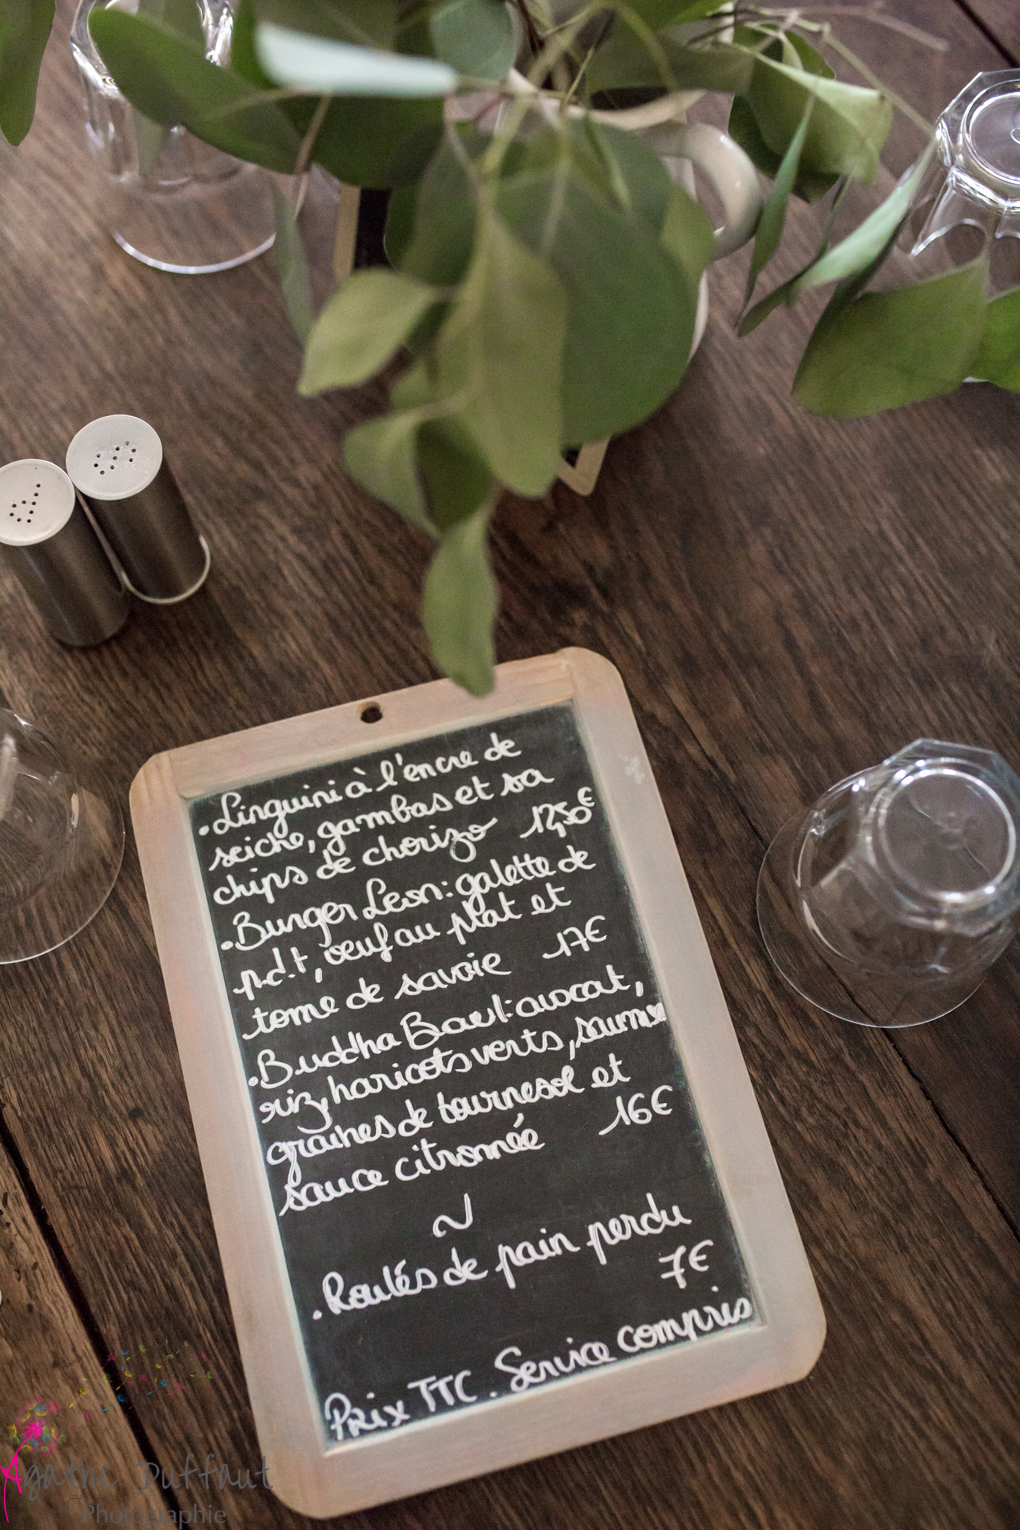 .Linguini à l'encre de
seiche, gambas et sa
chips de chorizo 12,50€
.Burger Leon: galette de
p.d.t, oeuf au plat et
tome de savoie 17€
.Buddha Bowl: avocat,
riz, haricots verts, saumon
graines de tournesol et
sauce citronnée 16€
~
.Roulés de pain perdu
7€
Prix TTC. Service compris
Agathe Duffaut
Photographie